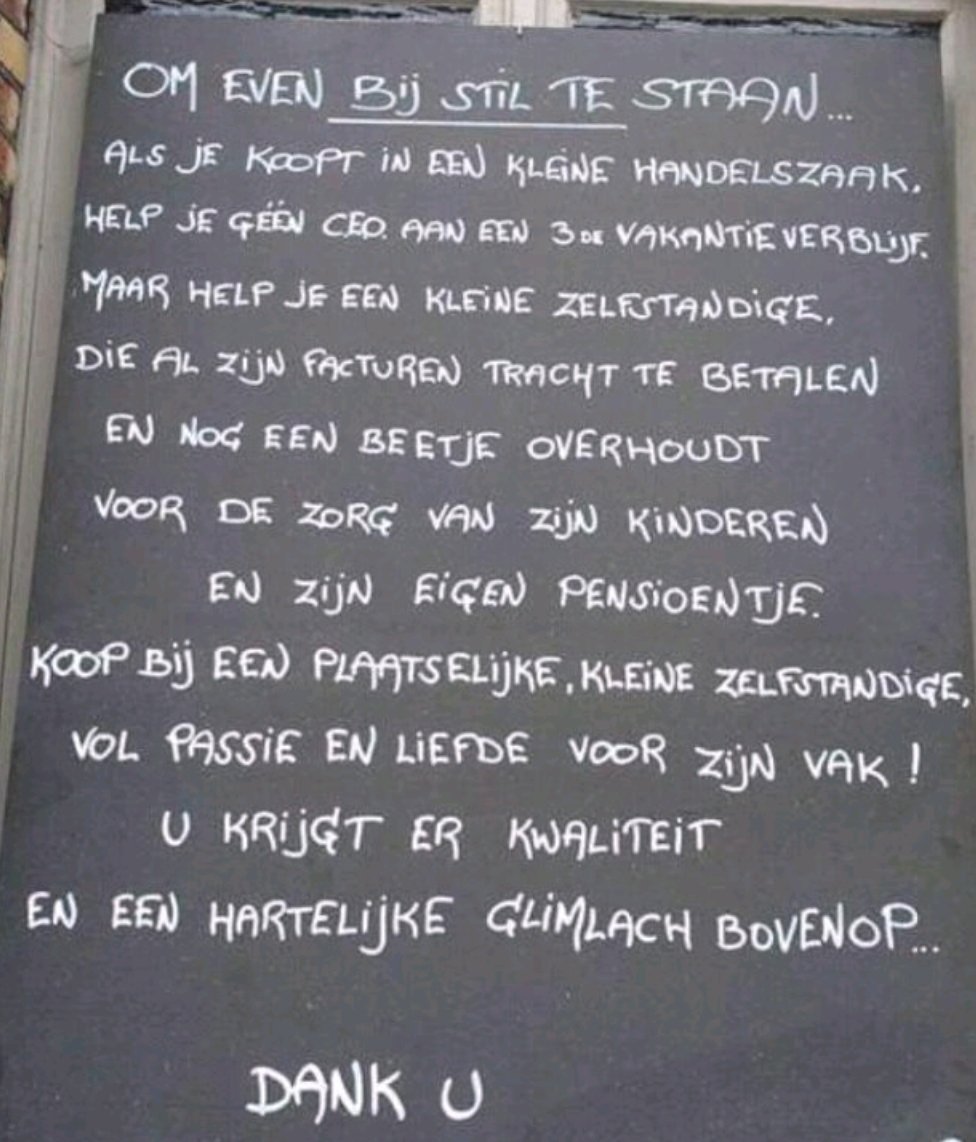 OM EVEN Bij STiL TE STAAN...
ALS jE KOOPT iN EEN KLEiNE HANDELSZAAK.
HELP jE GÉÉN CEO. AAN EEN 3DE VAKANTiEVERBLijF.
MAAR HELP jE EEN KLEiNE ZELFSTANDiGE,
DiE AL ZijN FACTUREN TRACHT TE BETALEN
EN NOG EEN BEETjE OVERHOUDT
VOOR DE ZORG VAN ZijN KiNDEREN
EN ZijN EiGEN PENSiOENTjE.
KOOP Bij EEN PLAATSELijKE, KLEiNE ZELFSTANDiGE,
VOL PASSiE EN LiEFDE VOOR ZijN VAK !
U KRijGT ER KWALiTEiT
EN EEN HARTELijKE GLiMLACH BOVENOP...
DANK U